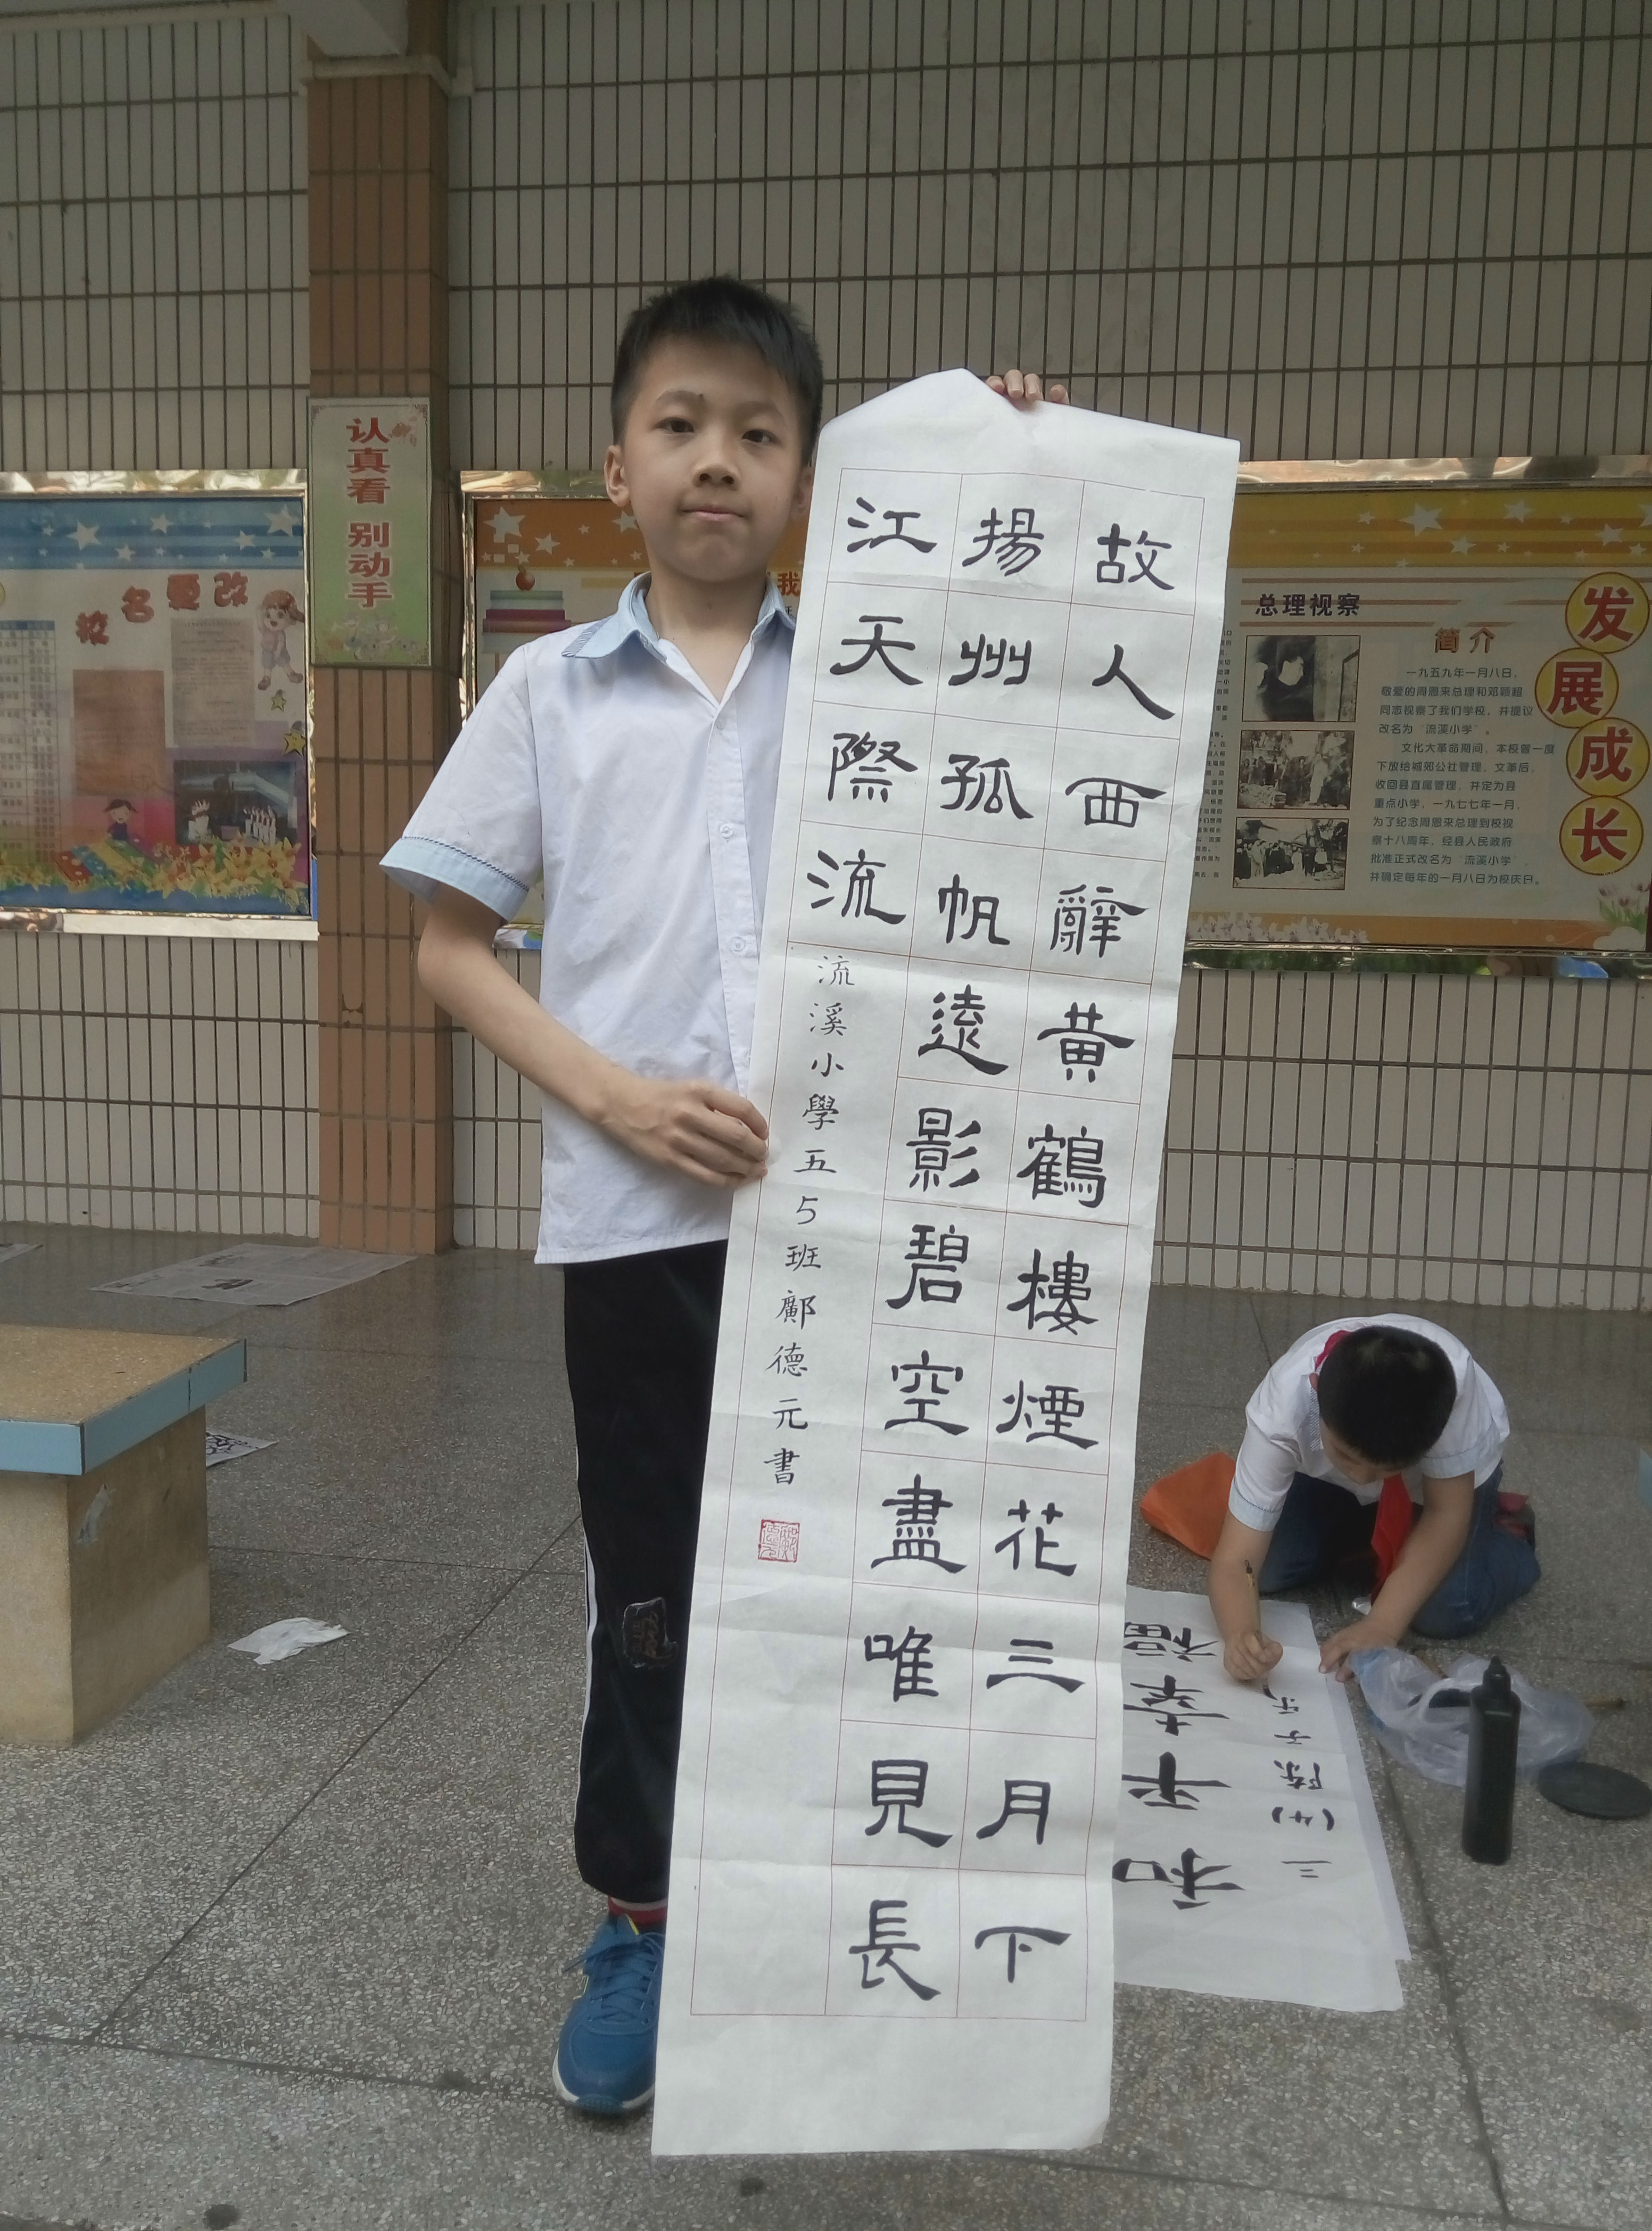 故人西辭黃鶴樓煙花三月下
揚州孤帆遠影碧空盡唯見長
江天際流
流溪小學五5班鄺德元書
认真看 别动手
校名更改
我
总理视察
简介
一九五九年一月八日,
敬爱的周恩来总理和邓颖超
同志视察了我们学校，并提议
改名为“流溪小学”。
文化大革命期间，本校曾一度
下放给城郊公社管理，文革后，
收回县直属管理，并定为县
重点小学，一九七七年一月，
为了纪念周恩来总理到校视
察十八周年，经县人民政府
批准正式改名为“流溪小学”，
并确定每年的一月八日为校庆日。
发展成长
和平幸福
三(4)陈子乐